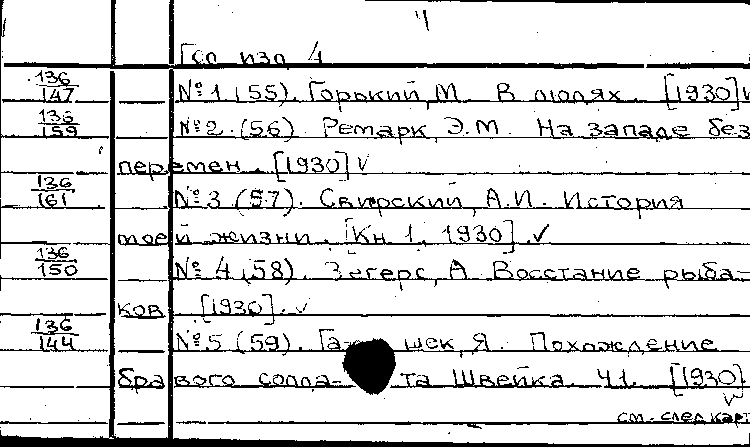 4
Гос изд 4
136/147 №1 (55). Горький, М. В людях. [1930] v
136/159 №2. (56) Ремарк, Э.М. На западе без
перемен. [1930] v
136/161 №3 (57). Свирский, А.И. История
моей жизни. [Кн 1, 1930]. v
136/150 №4 (58). Зегерс, А Восстание рыба-
ков [1930]. v
136/144 №5 (59). Га шек, Я. Похождение
бравого солда- та Швейка. Ч1. [1930] v
см. след карт